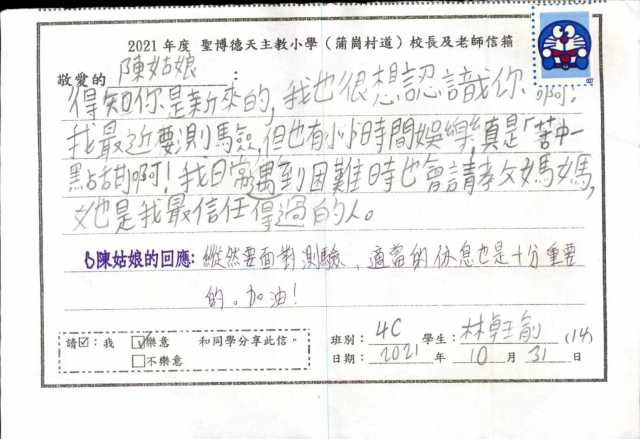 2021 年度 聖博德天主教小學（蒲崗村道）校長及老師信箱
敬愛的 陳姑娘 :
得知你是新來的，我也很想認識你
我最近要測驗，但也有小小時間娛樂，真是「苦中一
點甜」啊！我日常遇到困難時也會請教媽媽，
她也是我最信任得過的人。
陳姑娘的回應: 縱然要面對測驗，適當的休息也是十分重要
的。加油！
請☑：我 ☑樂意 和同學分享此信。
□不樂意
班別： 4C 學生： 林 (14)
日期： 2021 年 10 月 31 日